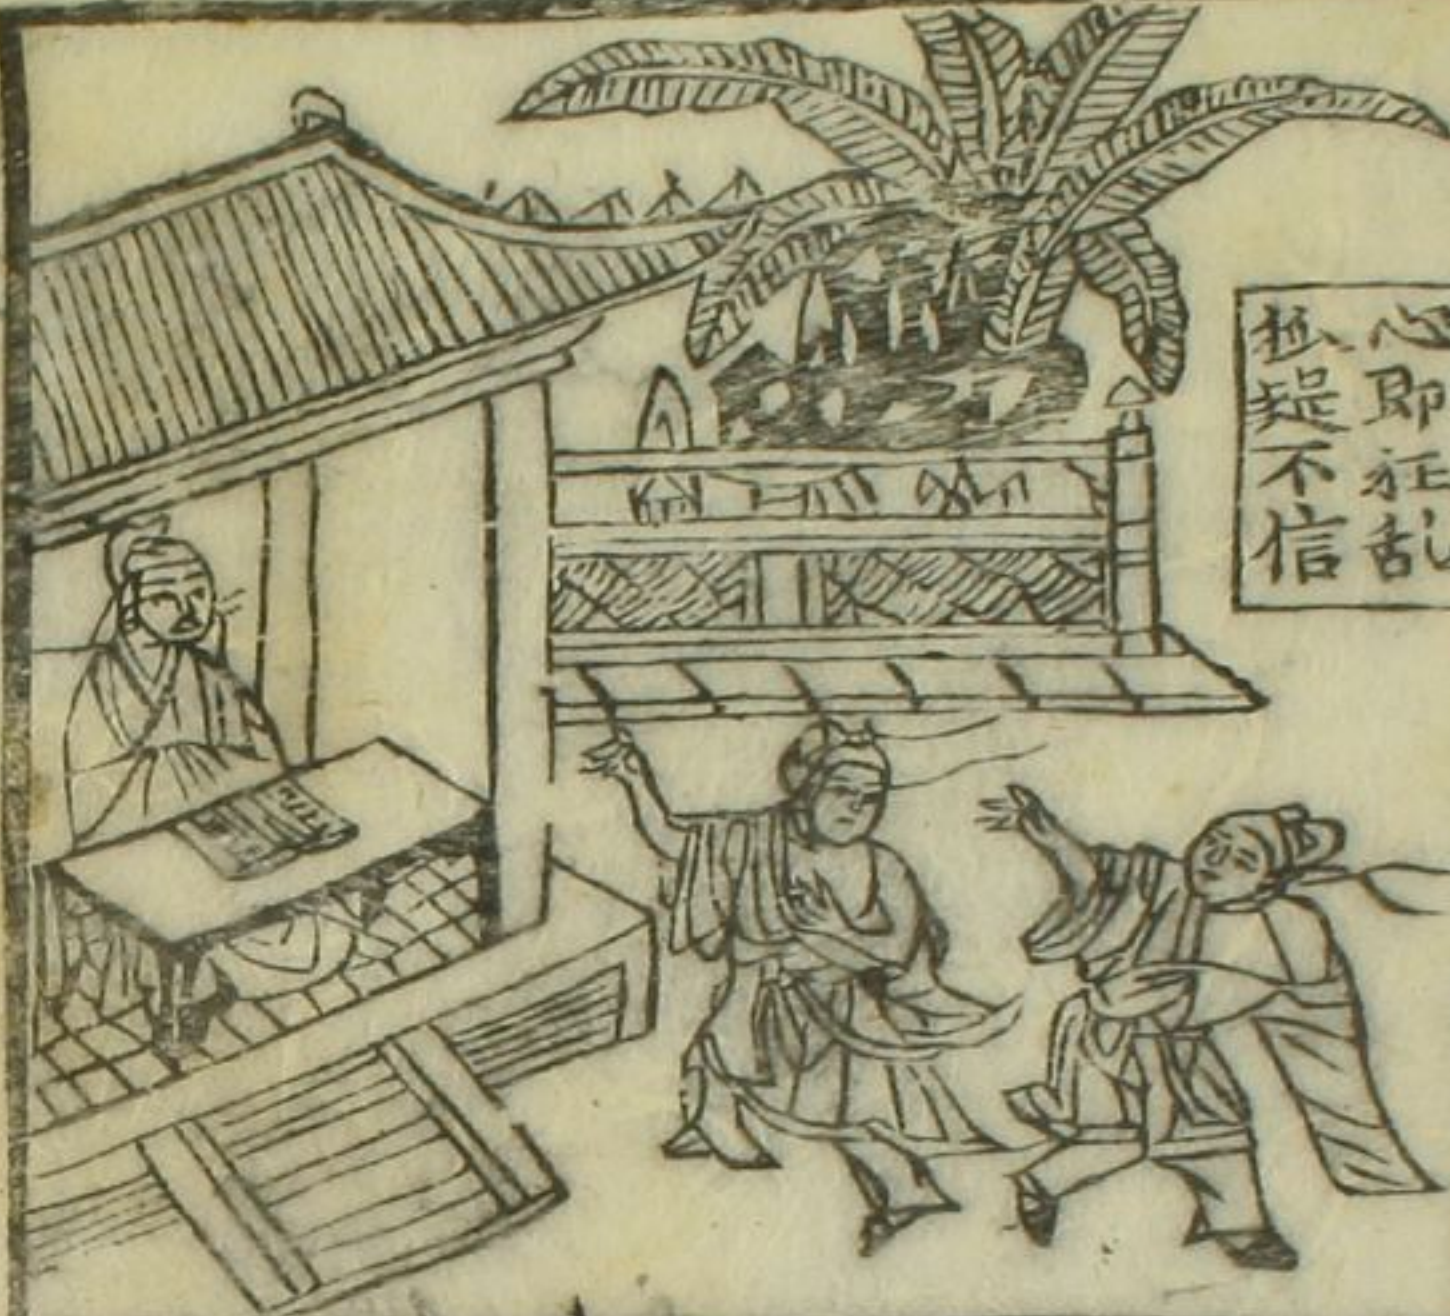 心即狂乱
狐疑不信